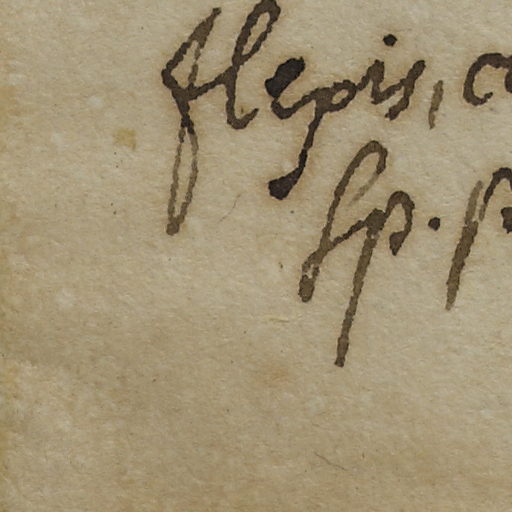 flepis, c
sp. p